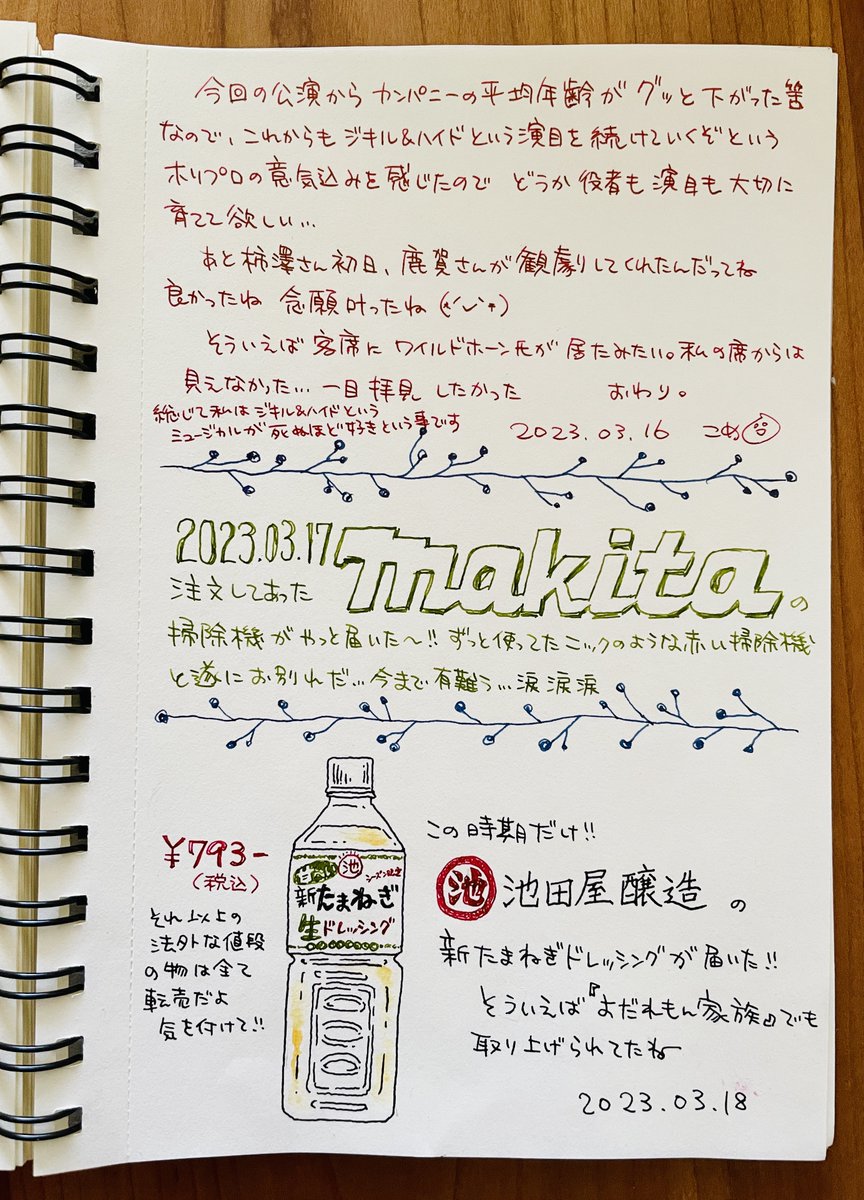 今回の公演から カンパニーの平均年齢が グッと下がった筈
なので、これからも ジキル&ハイド という演目を 続けていくぞという
ホリプロの意気込みを感じたので どうか役者も演目も大切に
育てて欲しい…
あと柿澤さん初日、鹿賀さんが観劇してくれたんだってね
良かったね 念願叶ったね
そういえば 客席に ワイルドホーン氏が 居たみたい。私の席からは
見えなかった… 一目拝見 したかった おわり。
総じて私は ジキル&ハイドという
ミュージカルが 死ぬほど好きという事です
2023.03.16 こめ
2023.03.17 makita の
注文してあった
掃除機が やっと届いた〜!! ずっと使ってた ニックのような赤い掃除機
と遂に お別れだ…今まで有難う…涙涙涙
この時期だけ!!
¥793-
(税込)
それ以上の
法外な値段
の物は全て
転売だよ
気を付けて!!
池
シーズン限定
新たまねぎ
生ドレッシング
池 池田屋醸造 の
新たまねぎドレッシングが届いた!!
そういえば『よだれもん家族』でも
取り上げられてたねー
2023.03.18